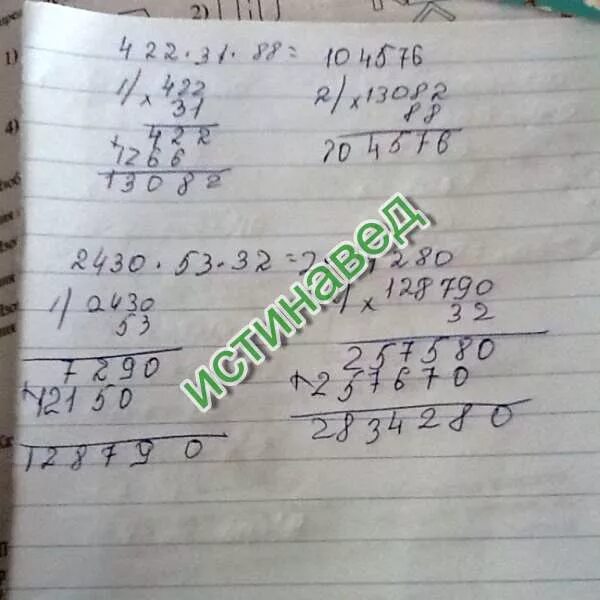 2)
1)
4)
422·31·88= 104576
1) × 422
31
422
+1266
13082
2) ×13082
88
104576
2430·53·32=2 280
1) 2430
53
7290
+12150
128790
) ×128790
32
257580
+257670
2834280
истинавед